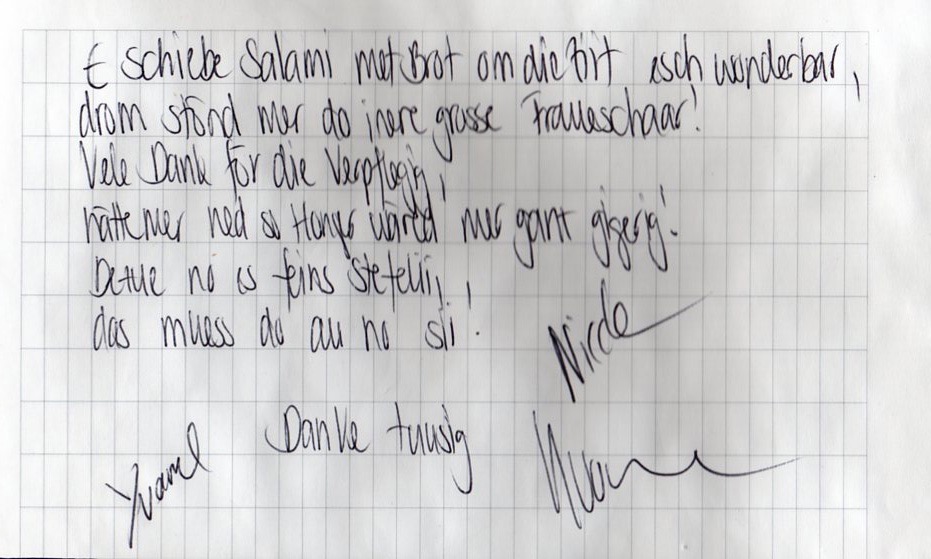 E schiebe Salami met Brot om die Ziit esch wonderbar,
drom stönd mer do inere grosse Fraueschaar!
Vele Dank för die Verpflegig,
hätte mer ned so Honger wärid mer ganz
Detue no es feins Stefelii,
das muess do au no sii!
Nicole
Danke tuusig